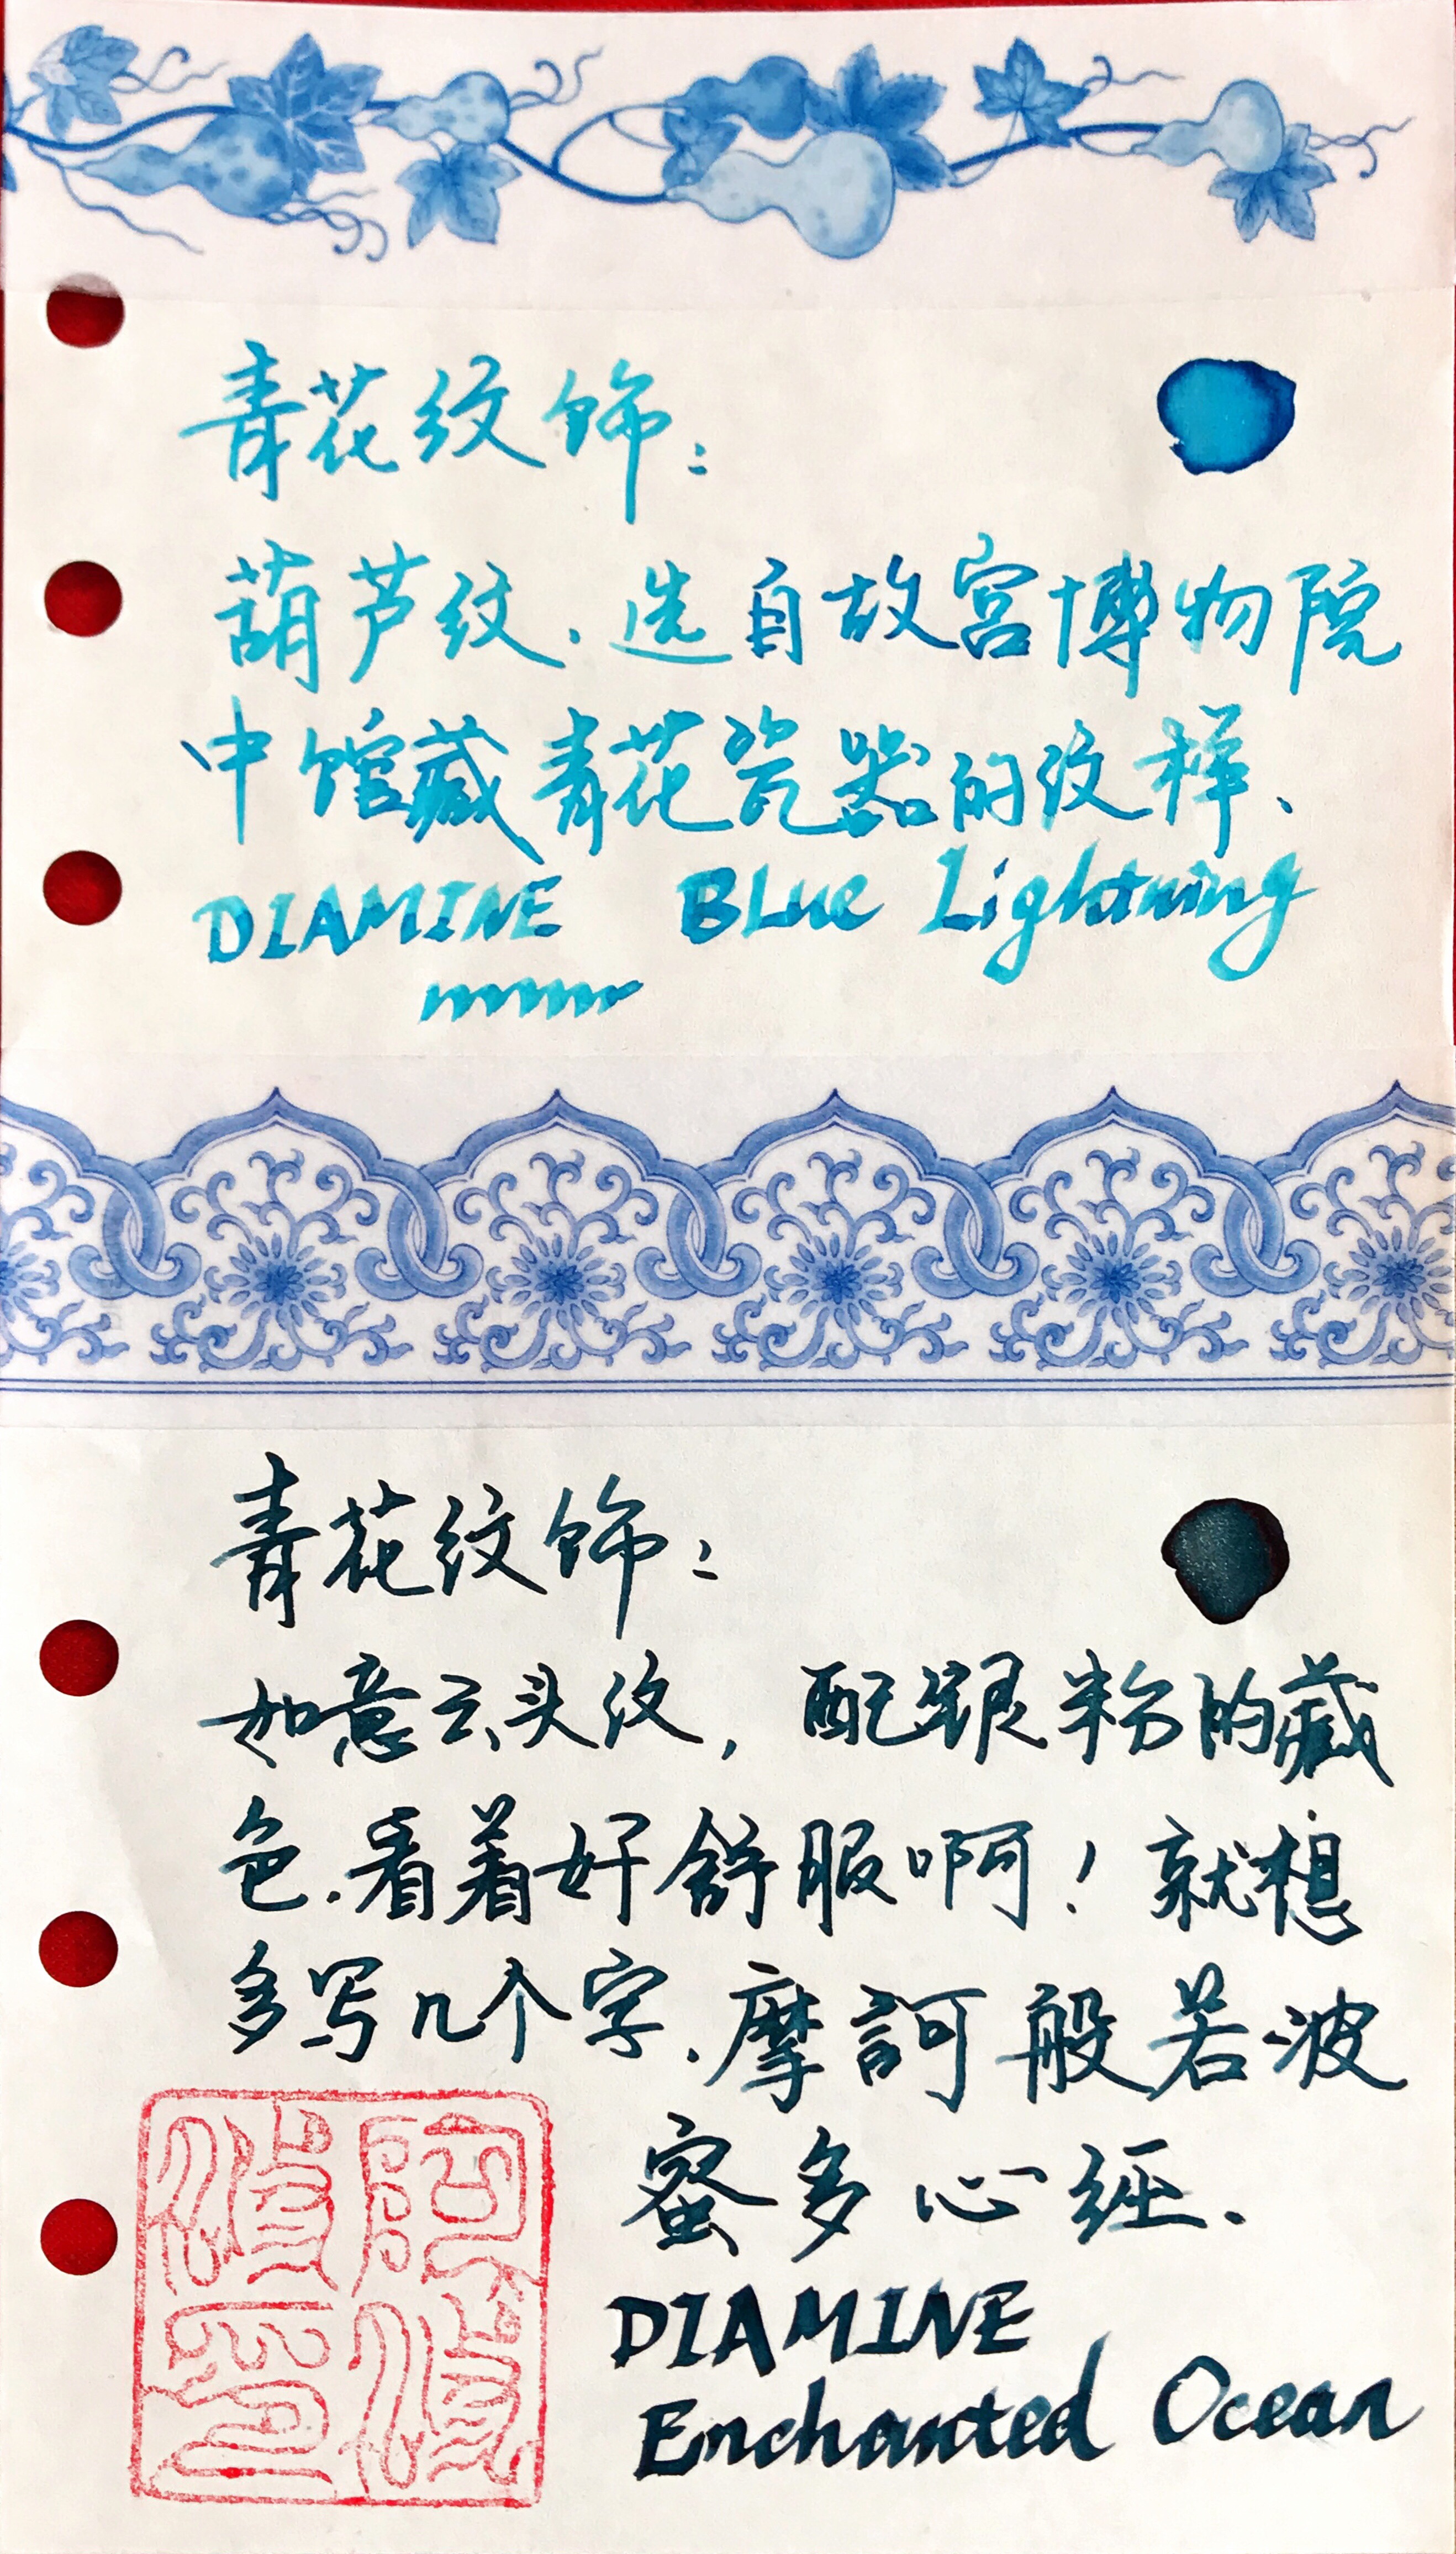 青花纹饰：
葫芦纹．选自故宫博物院
中馆藏青花瓷器的纹样、
DIAMINE Blue Lightning
青花纹饰：
如意云头纹，配银粉的藏
色．看着好舒服啊！就想
多写几个字．摩訶般若波
蜜多心經．
DIAMINE
Enchanted Ocean